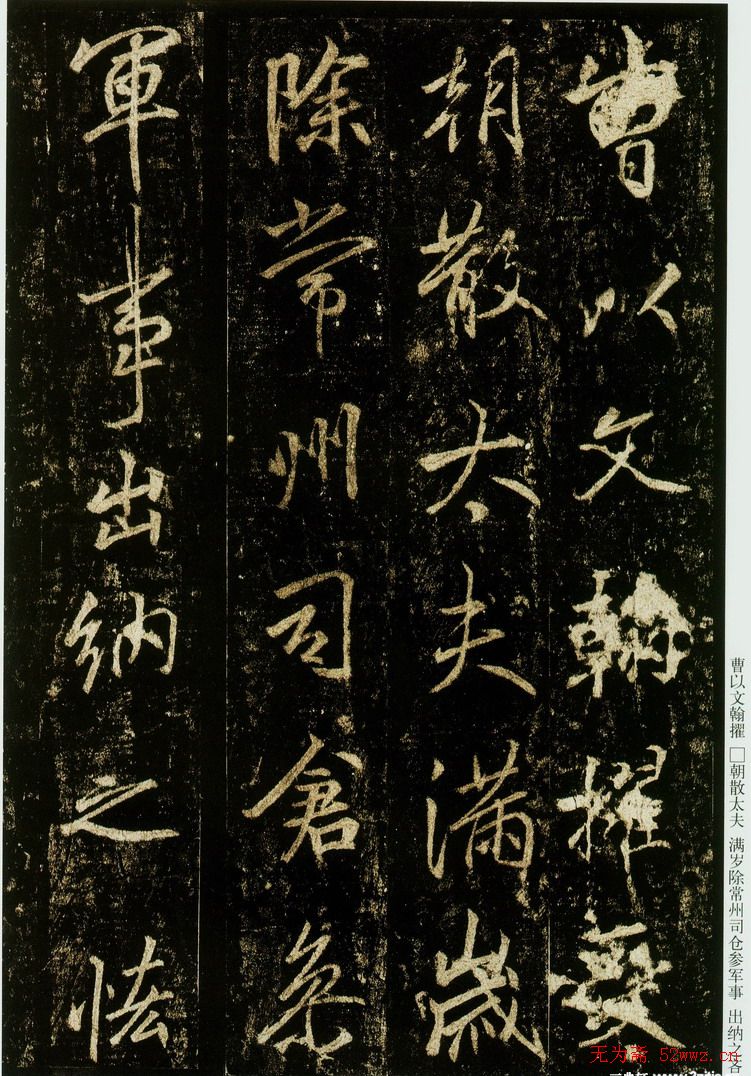 曹以文翰擢
朝散太夫滿歲
除常州司倉叅
軍事出納之恡
曹以文翰擢 □朝散太夫 满岁除常州司仓参军事 出纳之吝
无为斋 52wwz.cn